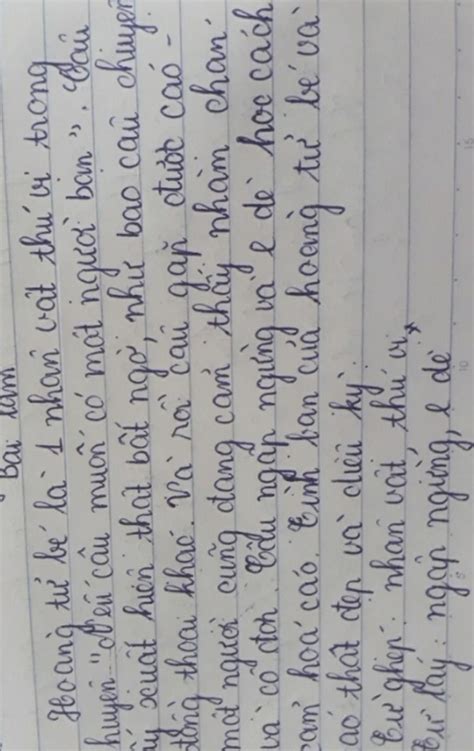 Bài làm
Hoàng tử bé là 1 nhân vật thú vị trong
huyện "Nếu cậu muốn có một người bạn". Cậu
ấy xuất hiện thật bất ngờ, như bao câu chuyện
đồng thoại khác. Và rồi cậu gặp được cáo -
một người cũng đang cảm thấy nhàm chán
và cô đơn. Cậu ngập ngừng và e dè học cách
cảm hoá cáo. Tình bạn của hoàng tử bé và
áo thật đẹp và diệu kỳ.
Từ ghép: nhân vật, thú vị,
Từ láy: ngập ngừng, e dè